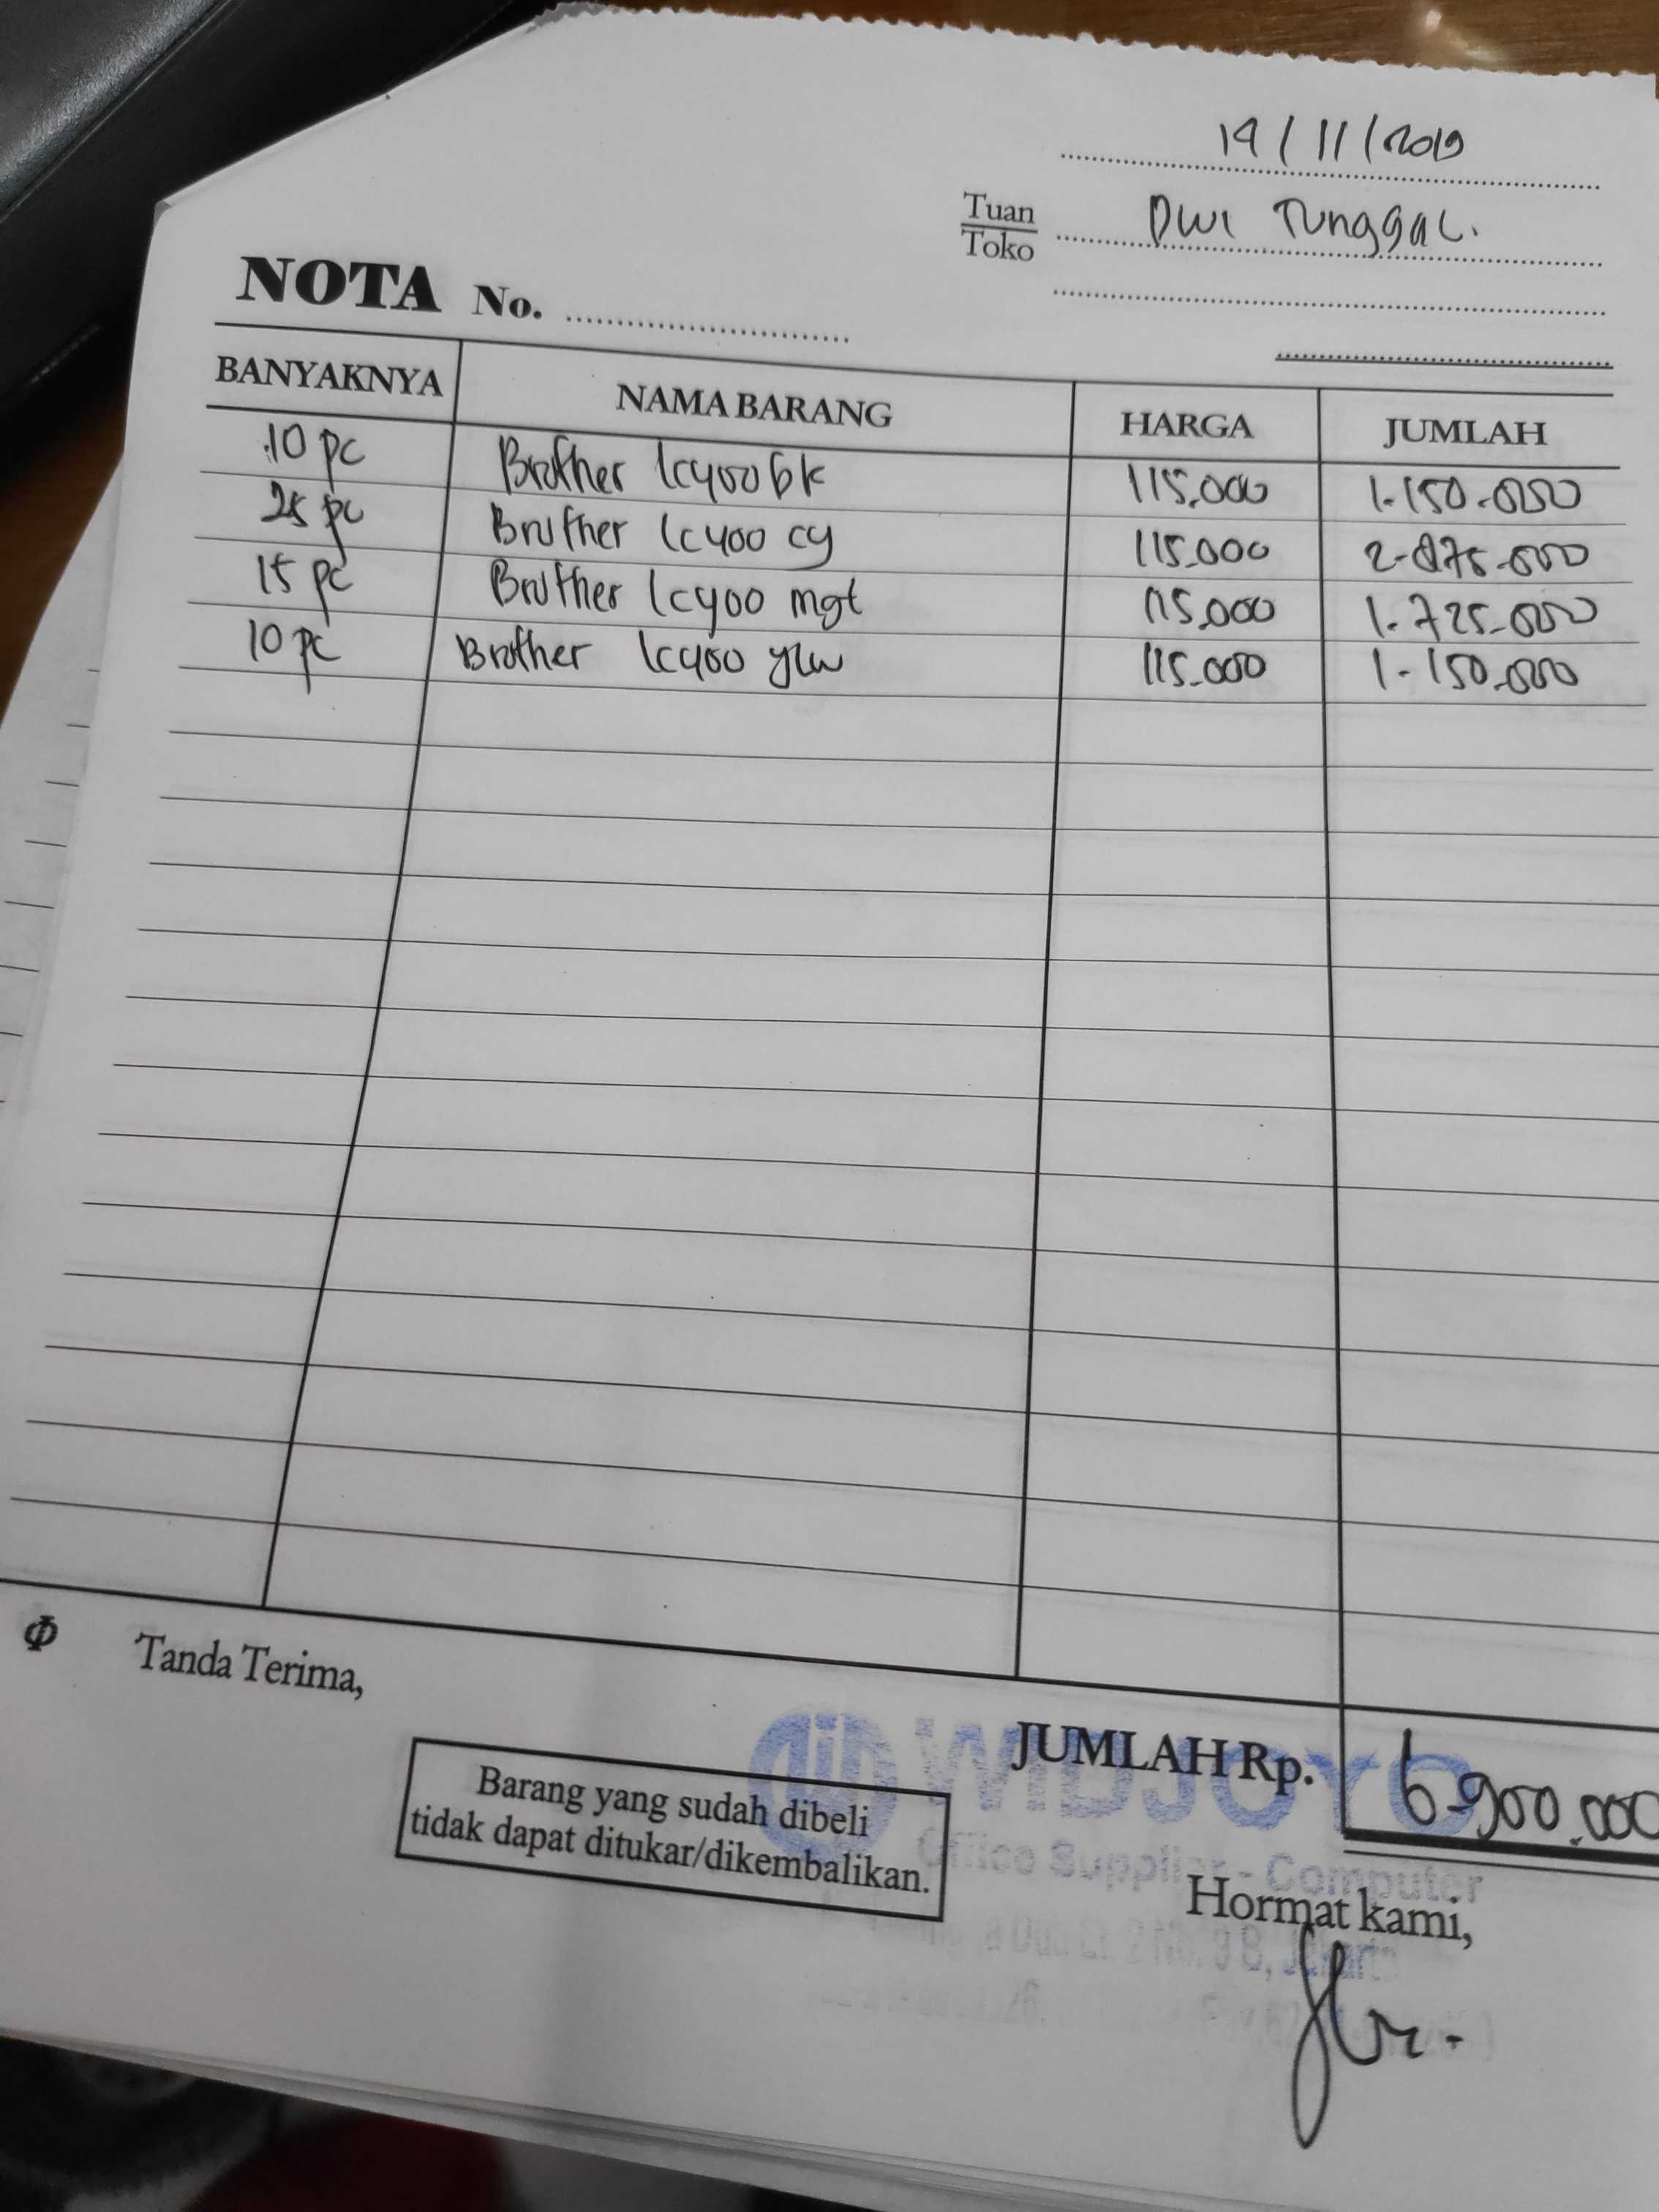 19/11/2019
Tuan
Toko
Dwi Tunggal.
NOTA No.
BANYAKNYA NAMA BARANG HARGA JUMLAH
10 pc Brother lc400 bk 115.000 1.150.000
25 pc Brother lc400 cy 115.000 2.875.000
15 pc Brother lc400 mgt 115.000 1.725.000
10 pc Brother lc400 ylw 115.000 1.150.000
Tanda Terima,
JUMLAH Rp. 6.900.000
WIDJOYO
Barang yang sudah dibeli
tidak dapat ditukar/dikembalikan.
Office Supplier - Computer
Hormat kami,